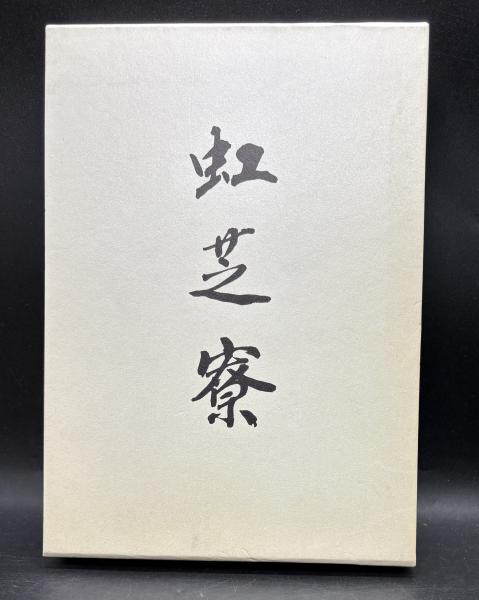 虹芝寮